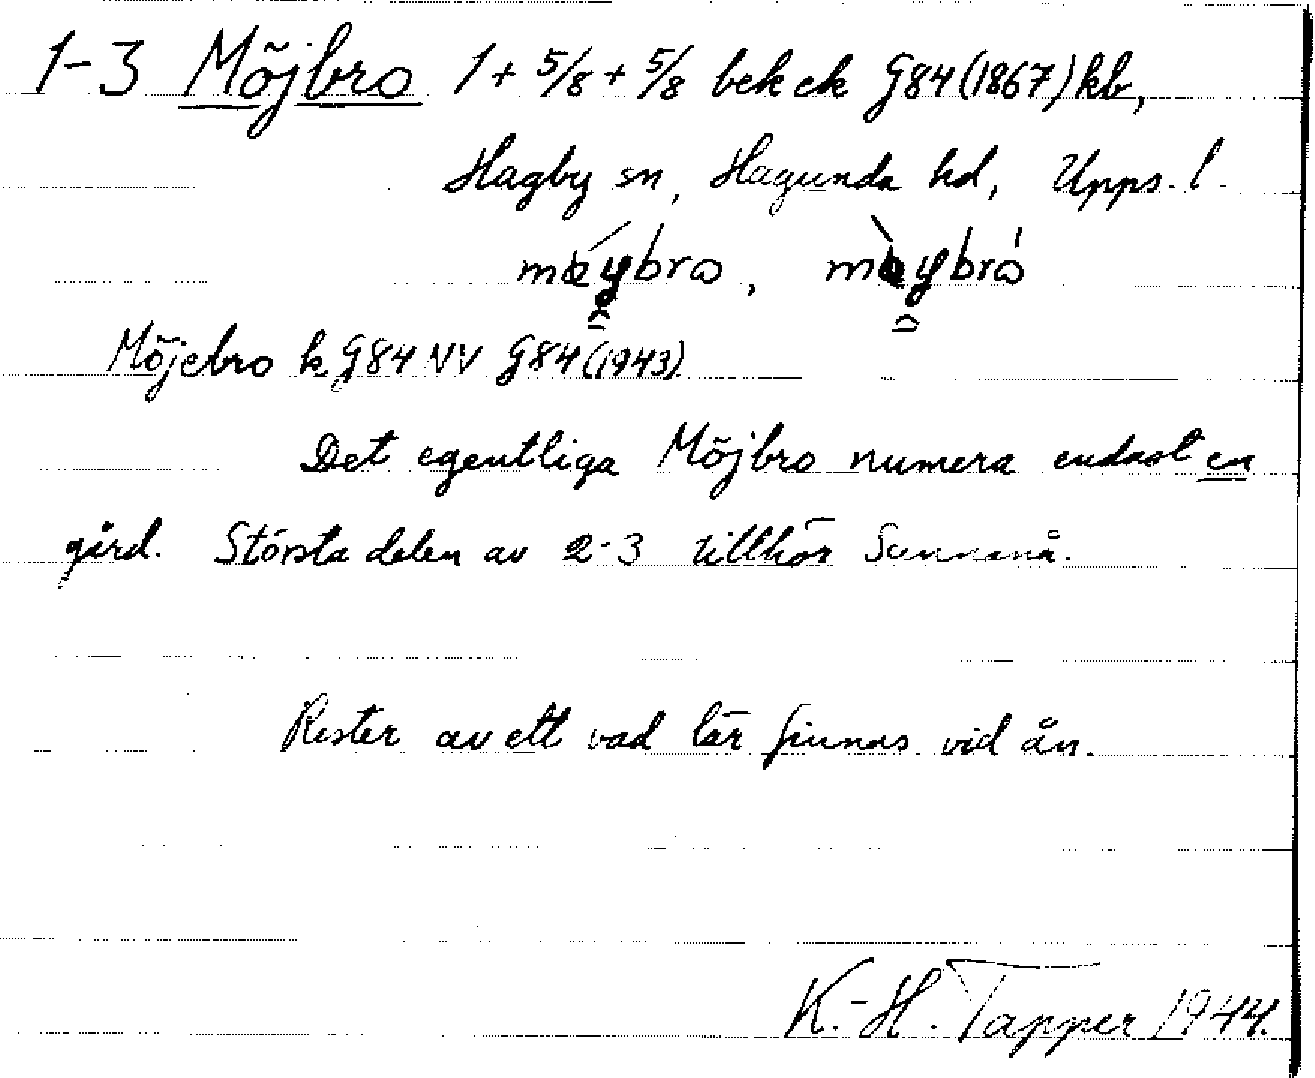 1-3 Möjbro 1 + 5/8 + 5/8 bek ek G84 (1867) kb,
Hagby sn, Hagunda hd, Upps. l.
Möjebro k G84 NV G84 (1943)
Det egentliga Möjbro numera endast en
gård. Största delen av 2-3 tillhör Sunnanå.
Rester av ett vad lär finnas vid ån.
K.-H. Tapper 1944.